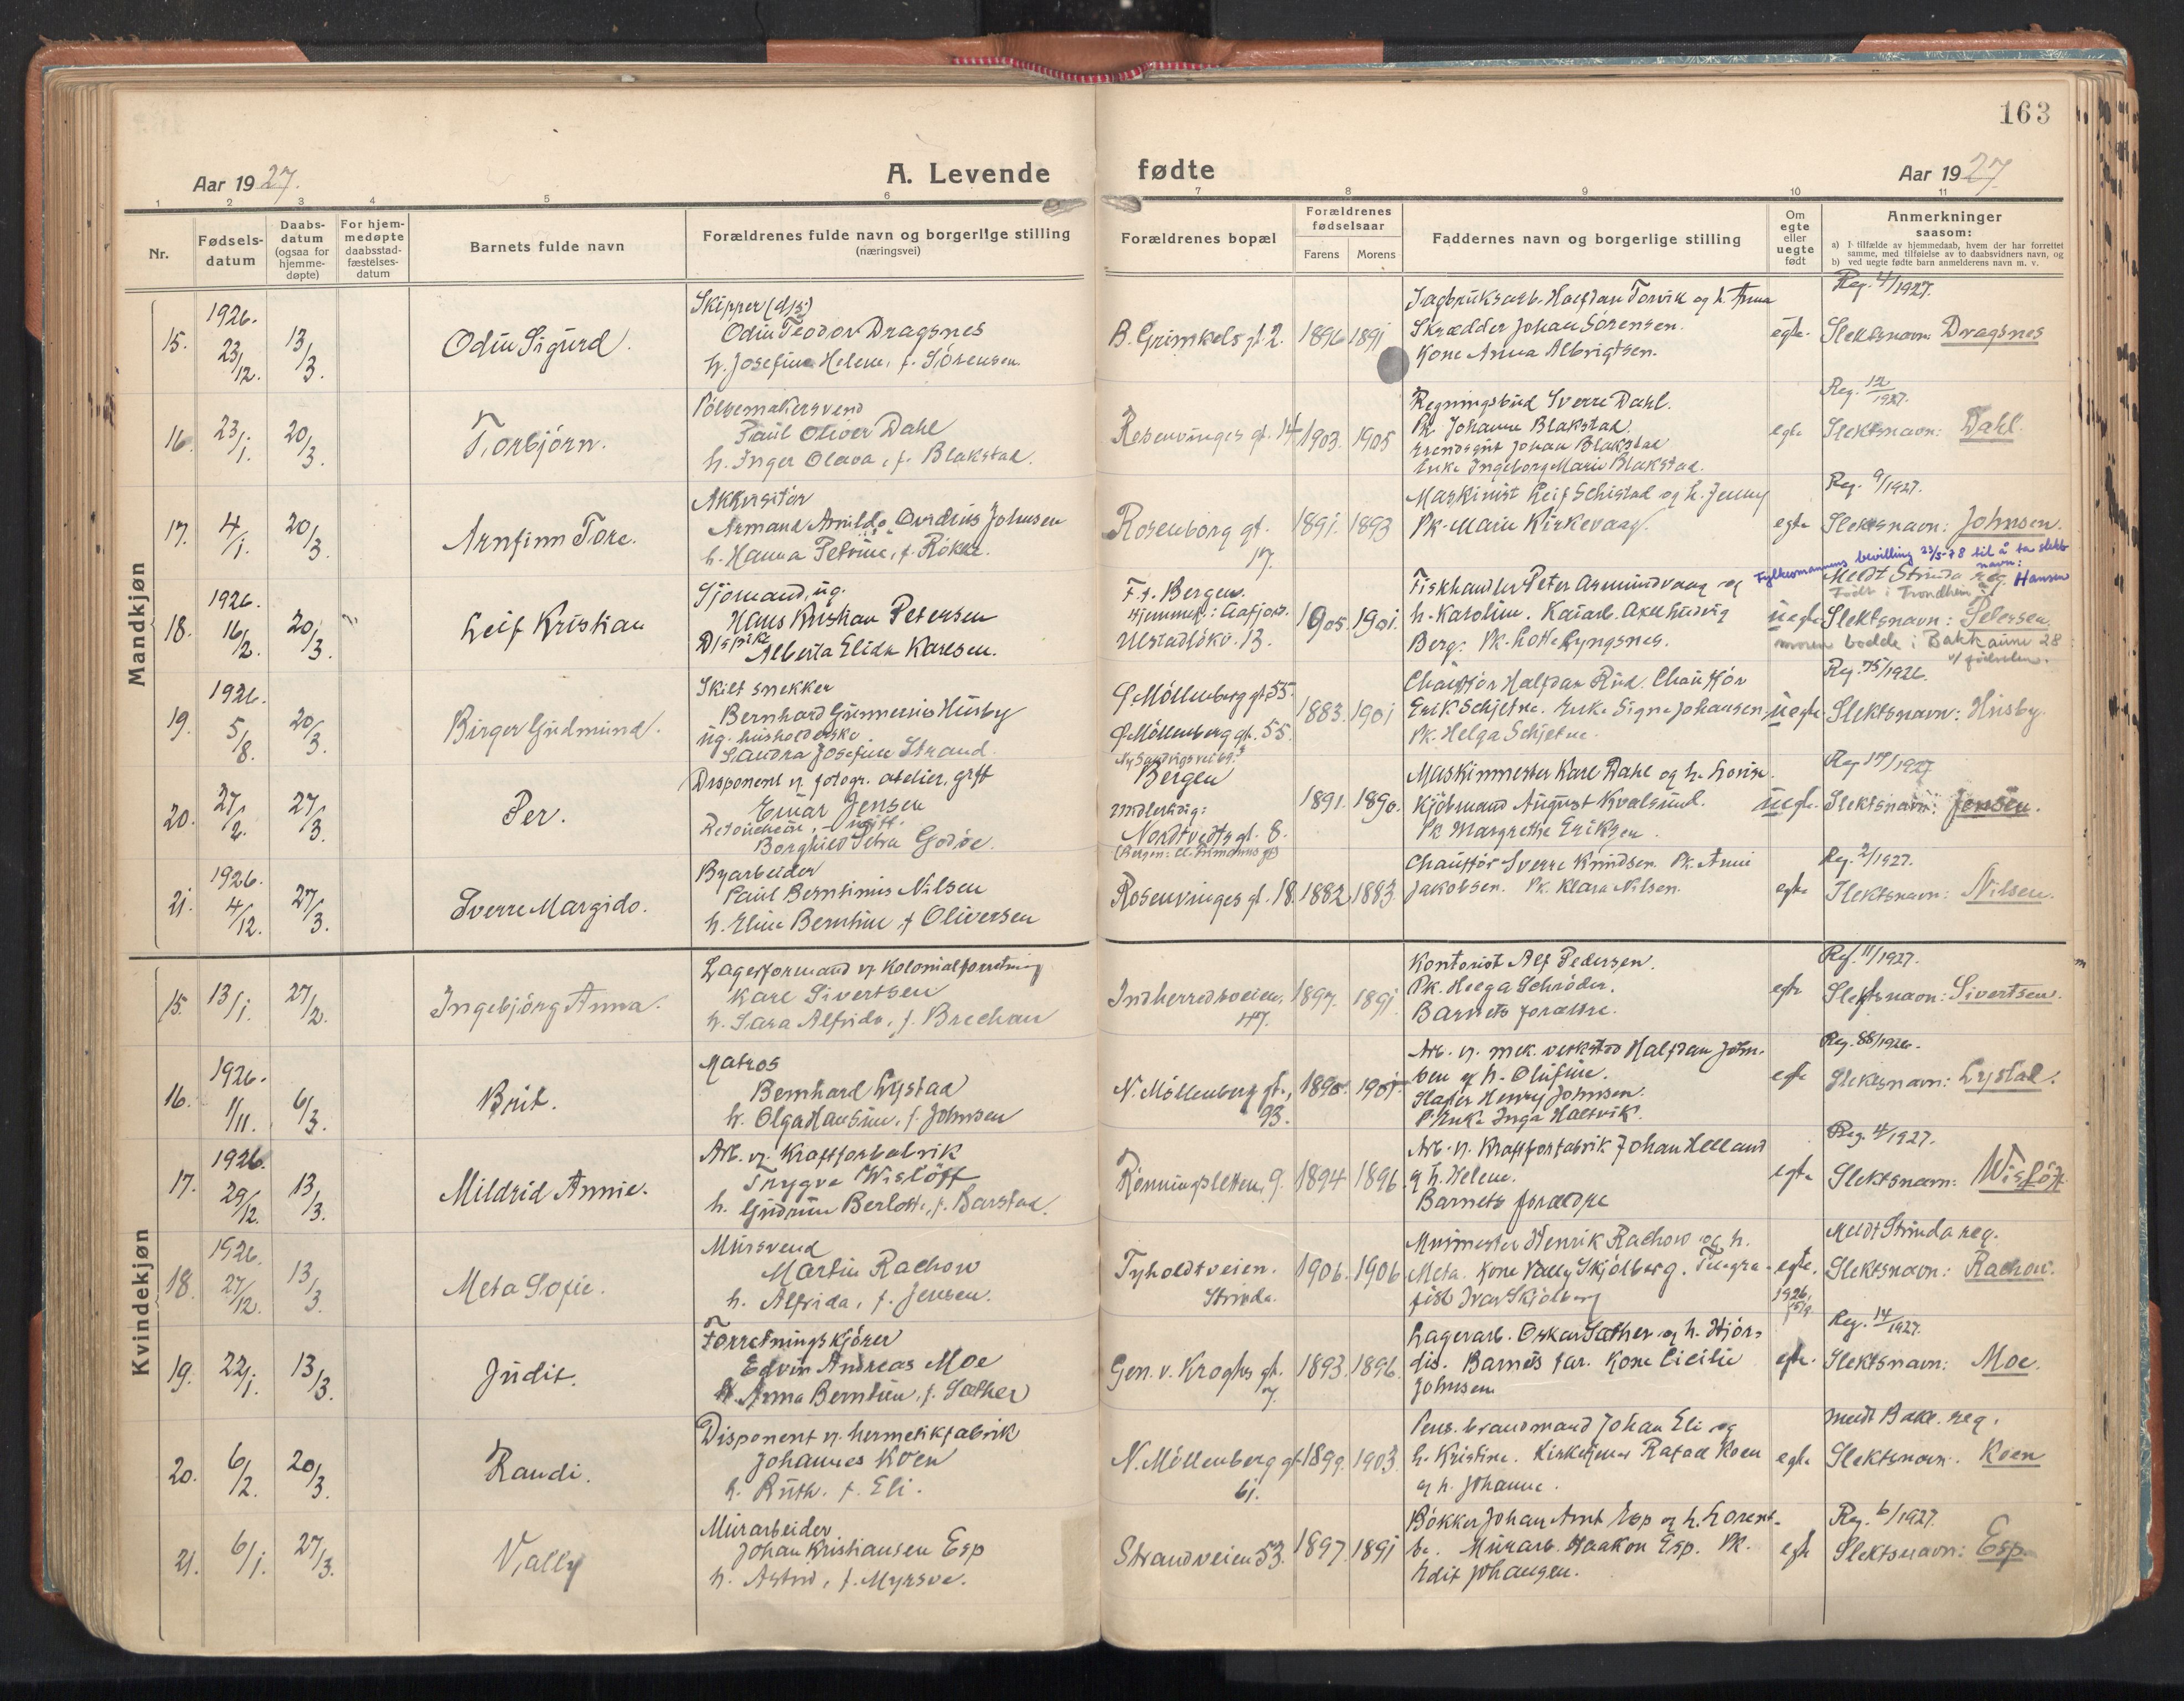 163
Aar 1927.
A. Levende
fødte
Aar 1927
1 2 3 4 5 6 7 8 9 10 11
Nr.
Fødsels-
datum
Daabs-
datum
(ogsaa for
hjemme-
døpte)
For hjem-
medøpte
daabsstad-
fæstelses-
datum
Barnets fulde navn
Forældrenes fulde navn og borgerlige stilling
(næringsvei)
Forældrenes bopæl
Forældrenes
fødselsaar
Farens Morens
Faddernes navn og borgerlige stilling
Om
egte
eller
uegte
født
Anmerkninger
saasom:
a) I tilfælde av hjemmedaab, hvem der har forrettet
samme, med tilføielse av to daabsvidners navn, og
b) ved uegte fødte barn anmelderens navn m. v.
Mandkjøn
15. 1926. 23/12. 13/3. Odin Sigurd.
Skipper (d/s)
Odin Teodor Dragsnes
h. Josefine Helene, f. Sørensen.
B. Grimkels gt. 2. 1896 1891
Sagbruksarb. Halfdan Torvik og h. Anna
Skrædder Johan Sørensen.
Kone Anna Albrigtsen.
egte.
Reg. 4/1927.
Slektsnavn: Dragsnes
16. 23/1. 20/3. Torbjørn.
Pølsemakersvend
Paul Oliver Dahl
h. Inger Olava, f. Blakstad.
Rosenvinges gt. 14 1903. 1905
Regningsbud Sverre Dahl.
Pk. Johanne Blakstad.
Erendsgut Johan Blakstad
Enke Ingeborg Marie Blakstad.
egte
Reg. 12/1927.
Slektsnavn: Dahl.
17. 4/1. 20/3. Arnfinn Tore.
Akkvisitør
Armand Arnildo Ovidius Johnsen
h. Hanna Petrine, f. Rokke.
Rosenborg gt. 17. 1891. 1893
Maskinist Leif Schistad og h. Jenny
Pk. Marie Kirkevaag.
egte
Reg. 9/1927.
Slektsnavn: Johnsen.
Fylkesmannens bevilling 23/5-78 til å ta slekts-
navn: Hansen
18. 1926. 16/2. 20/3. Leif Kristian
Sjømand, ug.
Hans Kristian Petersen
D/s pike
Alberta Elida Karlsen.
F.t. Bergen.
Hjemmeh.: Aafjord.
Ulstadløkv. 13. 1905. 1901.
Fiskhandler Peter Asmundvaag og
h. Karoline. Kaiarb. Axel Ludvig
Berg. Pk. Lotte Lyngsnes.
uegte
Meldt Strinda reg.
Født i Trondheim
Slektsnavn: Petersen.
moren bodde i Bakkaune 28
v/ fødselen.
19. 1926. 5/8. 20/3. Birger Gudmund.
Skilt snekker
Bernhard Gunnerius Husby
ug. husholderske
Sandra Josefine Strand.
Ø. Möllenberg gt. 55.
Ø. Möllenberg gt. 55. 1883. 1901
Chauffør Halfdan Rud. Chauffør
Erik Schjetne. Enke Signe Johansen.
Pk. Helga Schjetne.
uegte.
Reg. 75/1926.
Slektsnavn: Husby.
20. 27/2. 27/3. Per.
Disponent v. fotogr. atelier, gift
Einar Jensen
Retoucheuse, ugift.
Borghild Petra Godøe.
Bergen
Midlertidig:
Nordtvedts gt. 8. 1891. 1890.
Maskinmester Karl Dahl og h. Lovise.
Kjøbmand August Kvalsund.
Pk Margrethe Eriksen.
uegte.
Reg 17/1927
Slektsnavn: Jensen.
21. 1926. 4/12. 27/3. Sverre Margido.
Byarbeider
Paul Berntinus Nilsen
h. Eline Berntine f Oliversen
Rosenvinges gt. 18. 1882 1883.
Chauffør Sverre Knudsen. Pk. Anni
Jakobsen. Pk. Klara Nilsen.
egte
Reg. 2/1927.
Slektsnavn: Nilsen.
Kvindekjøn
15. 13/1. 27/2. Ingebjörg Anna.
Lagerformand v. Kolonialforretning
Karl Sivertsen
h. Sara Alfrida, f. Brechan
Indherredsveien, 47. 1897. 1891
Kontorist Alf Pedersen.
Pk. Helga Schrøder.
Barnets forældre.
egte
Reg. 11/1927.
Slektsnavn: Sivertsen.
16. 1926. 1/11. 6/3. Brit.
Matros
Bernhard Lystad
h. Olga Hansine, f. Johnsen
N. Möllenberg gt., 93. 1895. 1901
Arb. v. mek. verksted Halfdan John-
sen og h. Olufine.
Slagter Henry Johnsen.
Enke Inga Haltvik.
egte
Reg. 88/1926.
Slektsnavn: Lystad.
17. 1926. 29/12. 13/3. Mildrid Annie.
Arb. v. Kraftforfabrik
Trygve Wisløff
h. Gudrun Berlotte, f. Barstad.
Rønningsletten, 9. 1894 1896.
Arb. v. Kraftforfabrik Johan Helland
og h. Helene.
Barnets forældre
egte
Reg. 4/1927.
Slektsnavn: Wisløff.
18. 1926. 27/12. 13/3 Meta Sofie.
Mursvend
Martin Rachow
h. Alfrida, f. Jensen.
Tyholdtveien.
Strinda. 1906. 1906
Murmester Henrik Rachow og h.
Meta. Kone Vally Skjølberg. Telegra-
fist Ivar Skjølberg
egte.
1926,
Meldt Strinda reg.
Slektsnavn: Rachow.
19. 22/1. 13/3. Judit.
Forretningskjører
Edvin Andreas Moe
h. Anna Berntine, f. Sæther
Gen. v. Kroghs gt. 7. 1893. 1896.
Lagerarb. Oskar Sæther og h. Hjør-
dis. Barnets far. Kone Cicilie
Johnsen
egte.
Reg. 14/1927.
Slektsnavn: Moe.
20. 6/2. 20/3. Randi.
Disponent v. hermetikfabrik
Johannes Koen
h. Ruth. f. Eli.
N. Möllenberg gt 61. 1899. 1903.
Pens. brandmand Johan Eli og
h. Kristine. Kirketjener Rafael Koen
og h. Johanne.
egte
Meldt Bakl. reg.
Slektsnavn. Koen
21. 6/1. 27/3. Vally
Murarbeider
Johan Kristiansen Esp
h. Astrid, f. Myrsve.
Strandveien 53. 1897. 1891
Bøkker Johan Arnt Esp og h. Lorent-
se. Murarb. Haakon Esp. Pk.
Edit Johansen.
egte
Reg. 6/1927.
Slektsnavn: Esp.